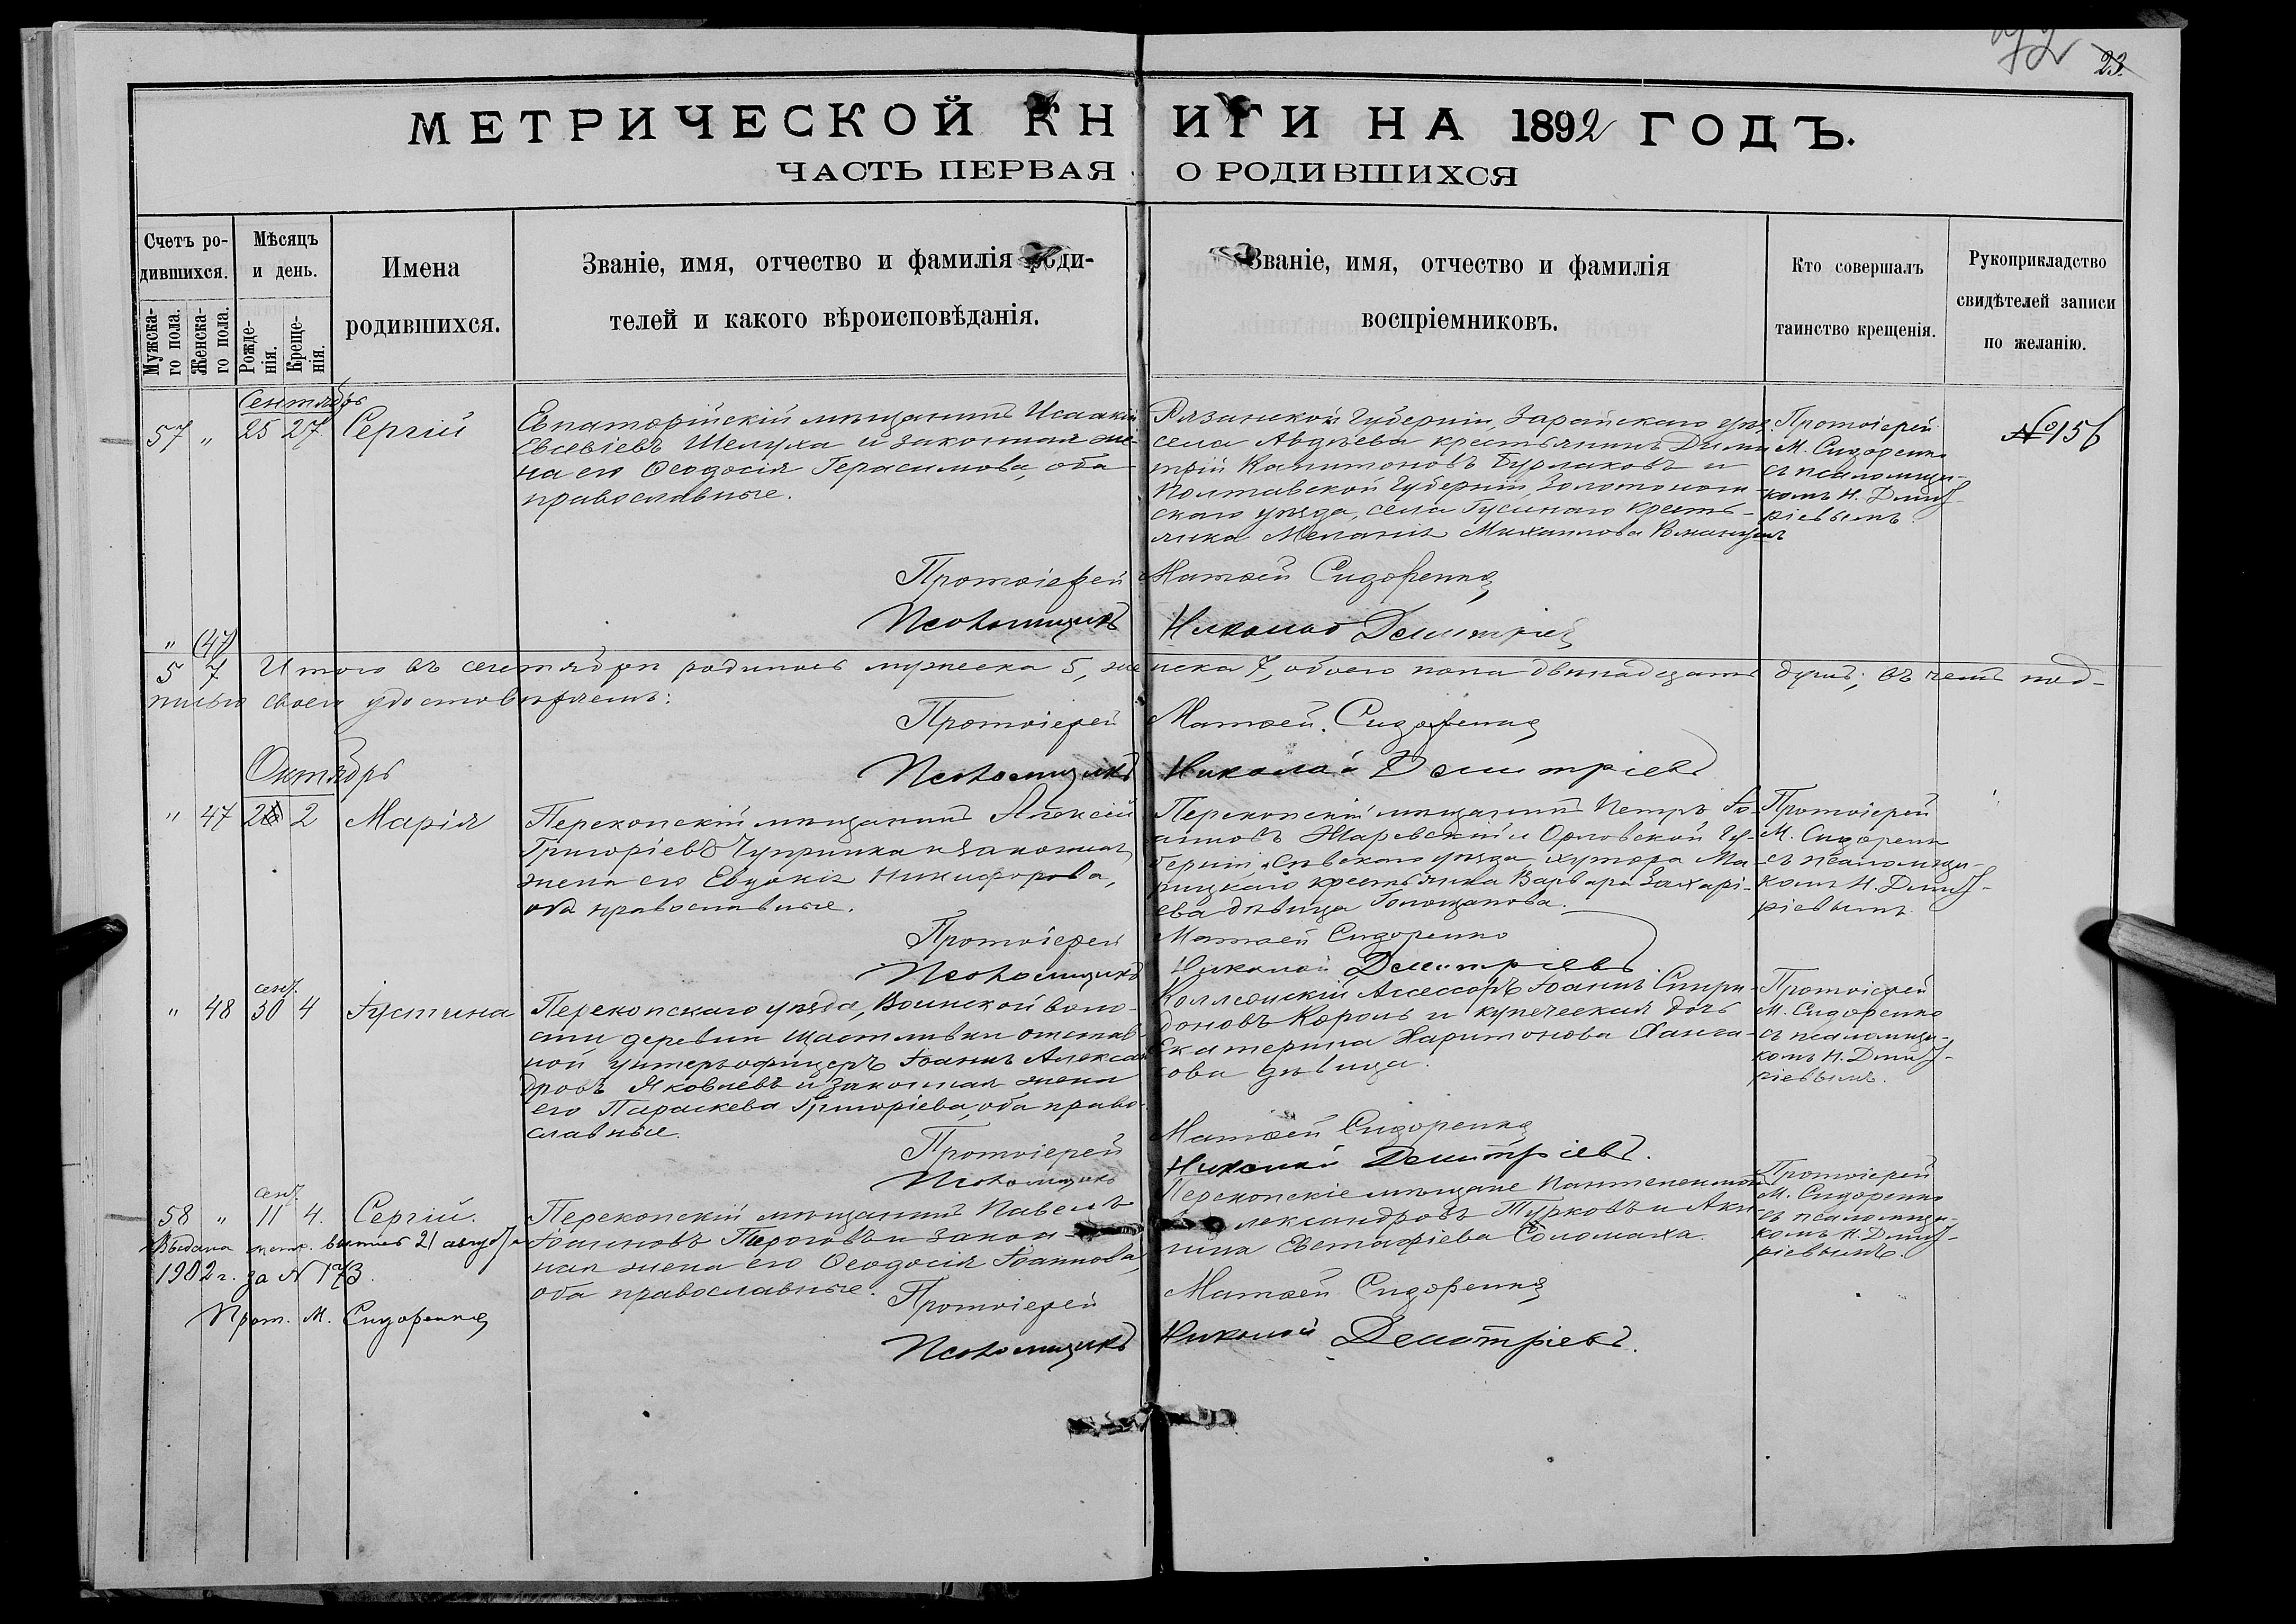 23.
МЕТРИЧЕСКОЙ КНИГИ НА 1892 ГОДЪ.
ЧАСТЬ ПЕРВАЯ О РОДИВШИХСЯ
Счетъ ро-
дившихся.
Мужска-
го пола.
Женска-
го пола.
Мѣсяцъ
и день.
Рожде-
нія.
Креще-
нія.
Имена
родившихся.
Званіе, имя, отчество и фамилія роди-
телей и какого вѣроисповѣданія.
Званіе, имя, отчество и фамилія
воспріемниковъ.
Кто совершалъ
таинство крещенія.
Рукоприкладство
свидѣтелей записи
по желанію.
Сентябрь
57 " 25 27 Сергій
Евпаторійскій мѣщанинъ Исаакій
Евсевіевъ Шелуха и законная же-
на его Ѳеодосія Герасимова, оба
православные.
Рязанской Губерніи, Зарайскаго уѣз.
села Авдѣева крестьянинъ Дими
трій Капитоновъ Бурлаковъ и
Полтавской Губерніи, Золотонош-
скаго уѣзда, села Гусинаго кресть-
янка Меланія Михаилова
Протоіерей
М. Сидоренко
съ псаломщи-
комъ Н. Димит-
ріевымъ.
№ 156
Протоіерей Матѳей Сидоренко
Псаломщикъ Николай Димитріев
" (47)
5 7 Итого въ сентябрѣ родилось мужеска 5, женска 7, обоего пола двѣнадцать душъ; въ чемъ под-
писью своею удостовѣряемъ:
Протоіерей Матѳей Сидоренко
Псаломщикъ Николай Димитріевъ
Октябрь
" 47 2 Марія
Перекопскій мѣщанинъ Алексій
Григоріевъ Чупринка и законная
жена его Евдокія Никифорова,
оба православные.
Перекопскій мѣщанинъ Петръ Іо-
анновъ Жаревскій и Орловской Гу-
берніи, Сѣвскаго уѣзда, хутора Ма-
рицкаго крестьянка Варвара Захарі-
ева дѣвица Голощапова.
Протоіерей
М. Сидоренко
съ псаломщи-
комъ Н. Димит-
ріевымъ
Протоіерей Матѳей Сидоренко
Псаломщикъ Николай Димитріевъ.
сент.
" 48 30 4 Іустина
Перекопскаго уѣзда, Воинской воло-
сти деревни Щастливки отстав-
ной унтеръ-офицеръ Іоаннъ Алексан
дровъ Яковлевъ и законная жена
его Параскева Григоріева, оба право-
славные.
Коллежскій Ассесоръ Іоаннъ Спири-
доновъ Король и купеческая дочь
Екатерина Харитонова
ова дѣвица.
Протоіерей
М. Сидоренко
съ псаломщи-
комъ Н. Димит-
ріевымъ.
Протоіерей Матѳей Сидоренко
Псаломщикъ Николай Димитріевъ.
сент.
58 " 11 4. Сергій.
Перекопскій мѣщанинъ Павелъ
Іоанновъ Пароговъ и закон-
ная жена его Ѳеодосія Іоаннова,
оба православные.
Перекопскіе мѣщане Пантелеимонъ
Александровъ Турковъ и Аки
лина Евстафіева Соломаха.
Протоіерей
М. Сидоренко
съ псаломщи-
комъ Н. Димит-
ріевымъ.
Выдана метр. выпись 21 августа
1902 г. за № 173.
Прот. М. Сидоренко
Протоіерей Матѳей Сидоренко
Псаломщикъ Николай Димитріевъ.